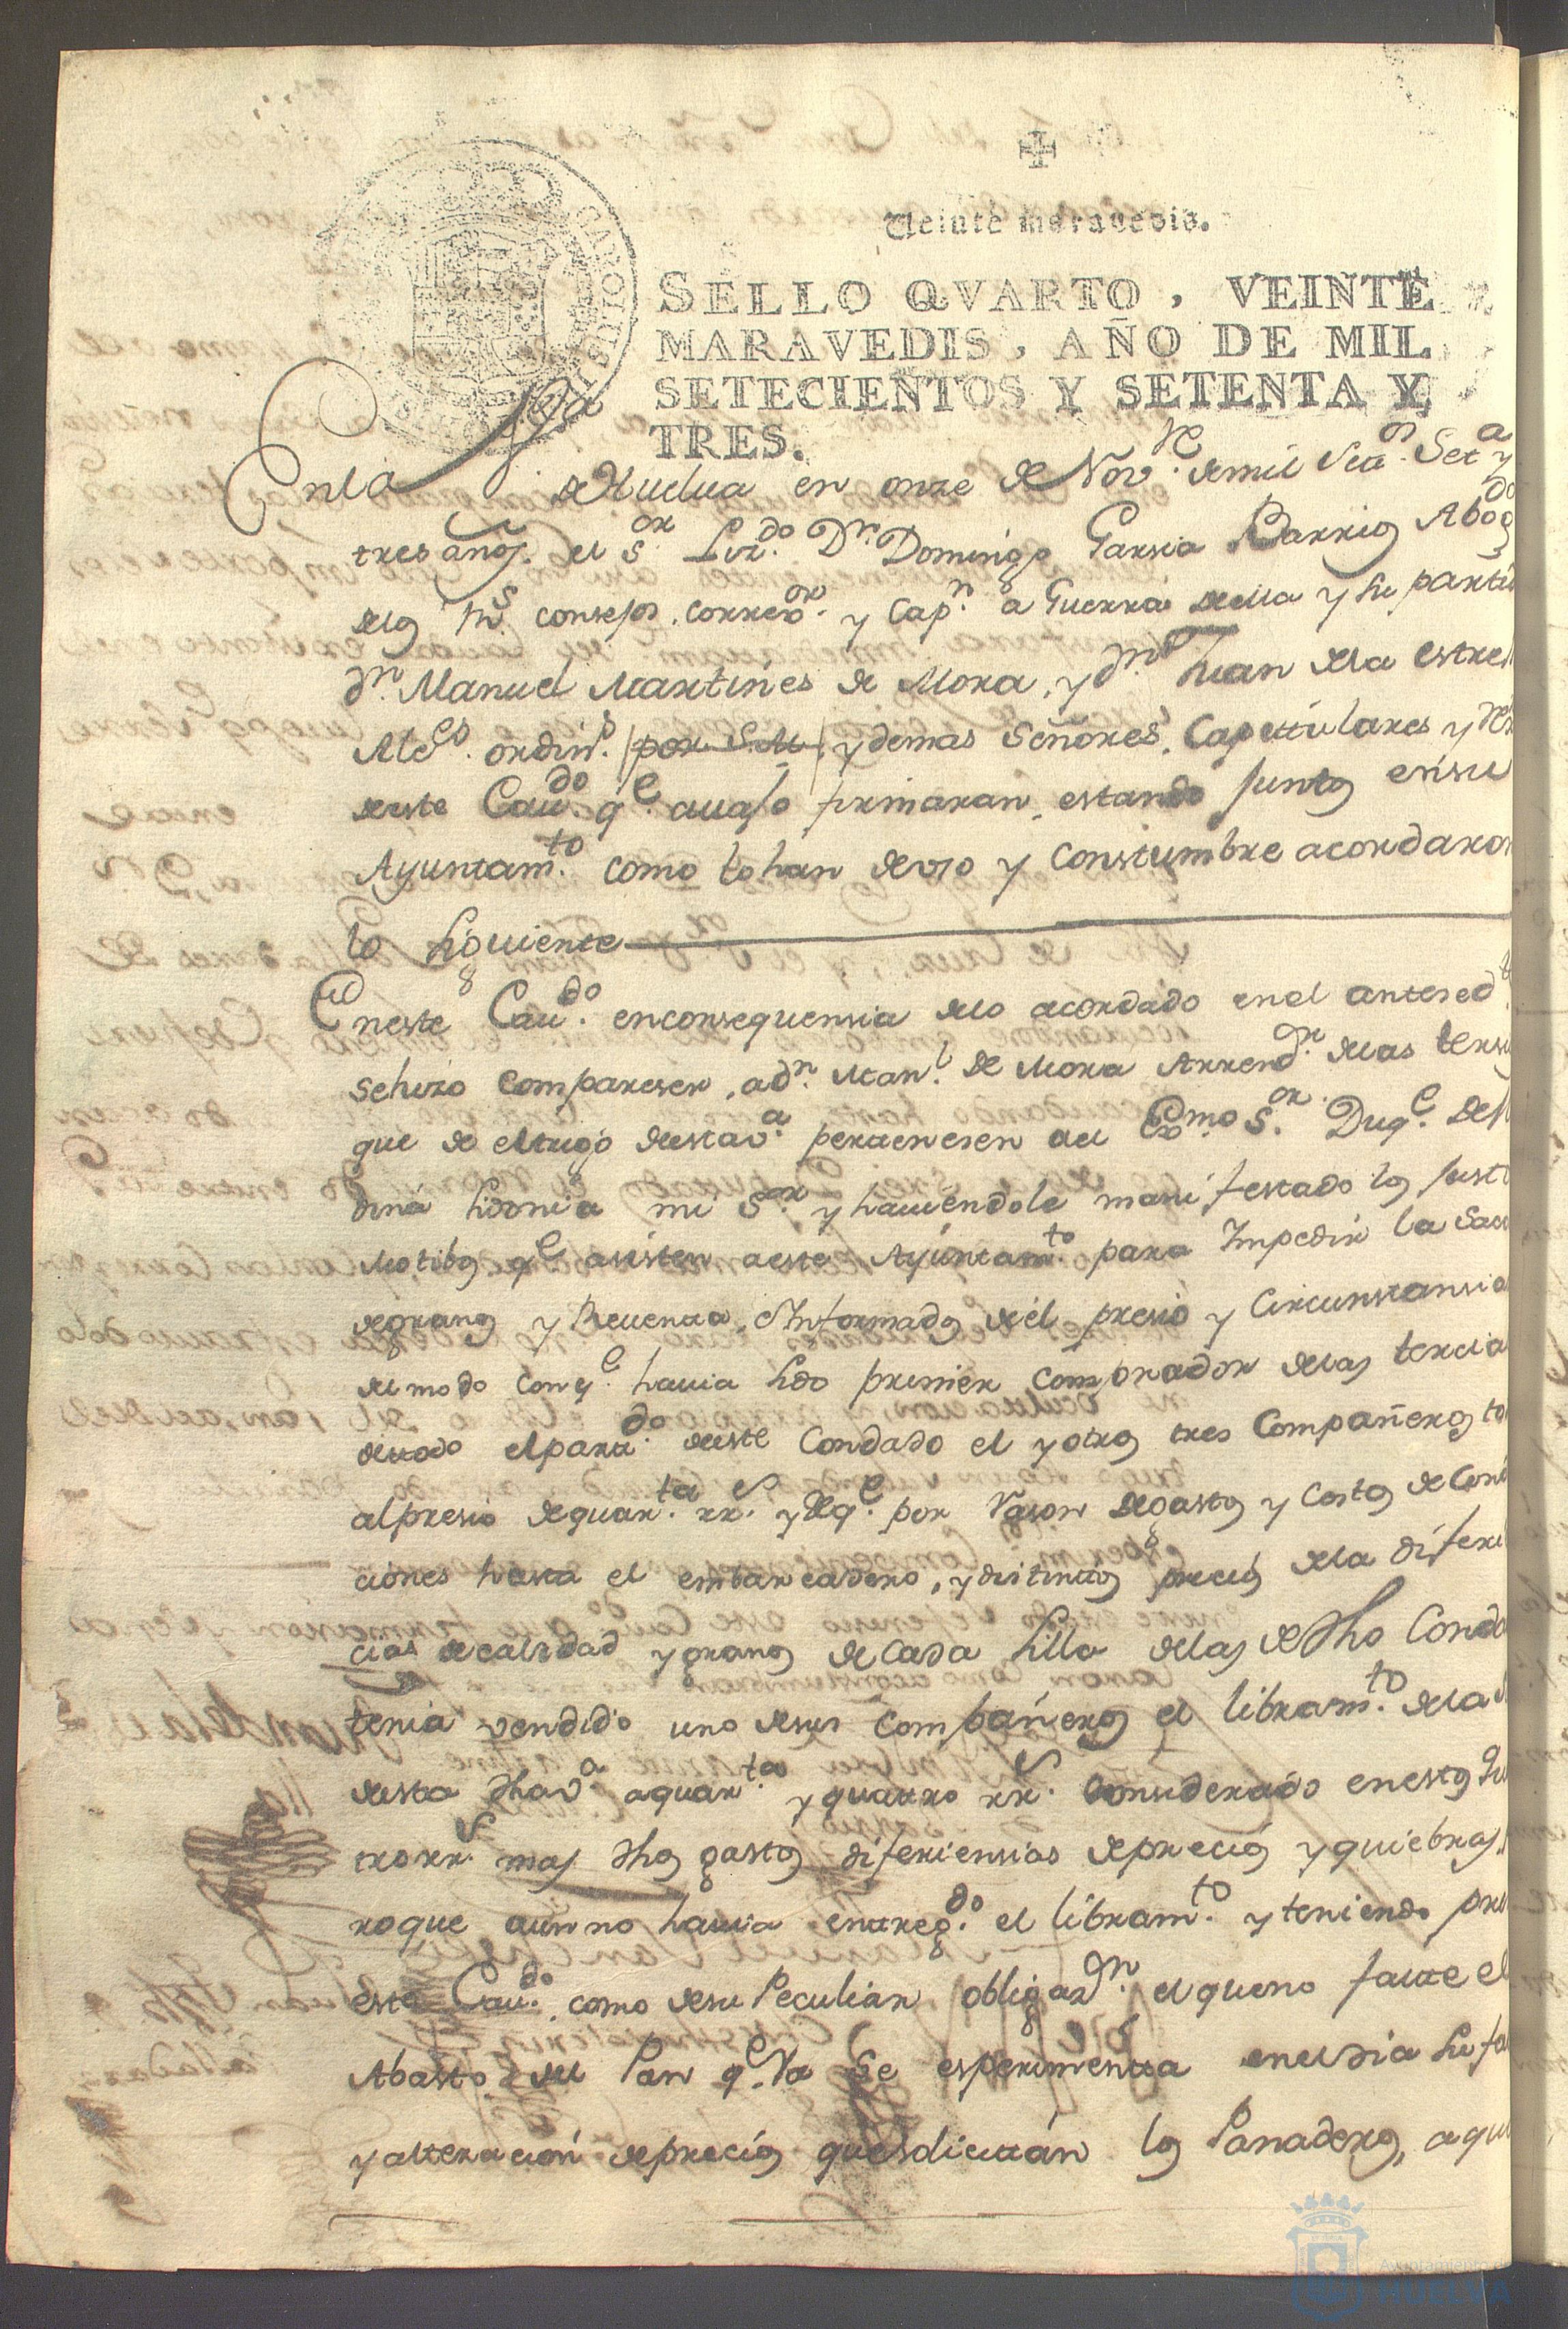 Veinte maravedis.
SELLO QVARTO, VEINTE
MARAVEDIS, AÑO DE MIL
SETECIENTOS Y SETENTA Y
TRES.
Enla Va de Huelua en onze de Nove. demil Setos. Seta y
tres años. el Sor. Lizdo. Dn. Domingo Garsia Barrios Abogdo
delos Rs. consejos, Correor. y Capn. a Guerra deella y su parti
dn. Manuel Martines de Mora, y dn. Juan dela estrell
Alces. ordins. /por S.M./ y demas Señores, Capitulares y
deeste Caudo. qe. auajo firmaran, estando juntos ensu
Ayuntamto. como lo han de vso y Constumbre acordaron
lo siguiente
Eneste Caudo. enconsequensia delo acordado enel antesedte.
sehizo compareser, adn. Manl. de Mora Arrendor. delas tersi
que de eltrigo deestava. pertenesen ael Exmo. Sor. Duqe. de M
dina sidonia mi Sor. y hauiendole manifestado los just
Motibos qe asisten aeste Ayuntamto. para Impedir la Sac
degranos y Reuenta, eInformados deel presio y Circunstansia
del modo conqe. hauia sido primer comprador delas tercia
detodo elpartdo. deeste Condado el y otros tres Compañeros to
alpresio de quarta. rrs. y deqe. por rason degastos y Costos de Con
ciones hasta el embarcadero, y distintos precios dela difere
cias de calidad y granos de cada Villa delas de dho Conda
tenia vendido uno desus Compañeros el libramto. dela
deesta dha va aquarta. y quatro rrs. Considerado enestos
trorrs. mas dhos gastos diferiensias deprecios y quiebras,
roque aun no hauia entregdo. el libramto. y teniendo pre
este Caudo. como desu Peculiar obligazn. elqueno falte el
Abasto del Pan qe. Ya se esperimenta eneldia su fa
y alteracion deprecios que solicitan los Panaderos, aqu
Ayuntamiento de
HUELVA